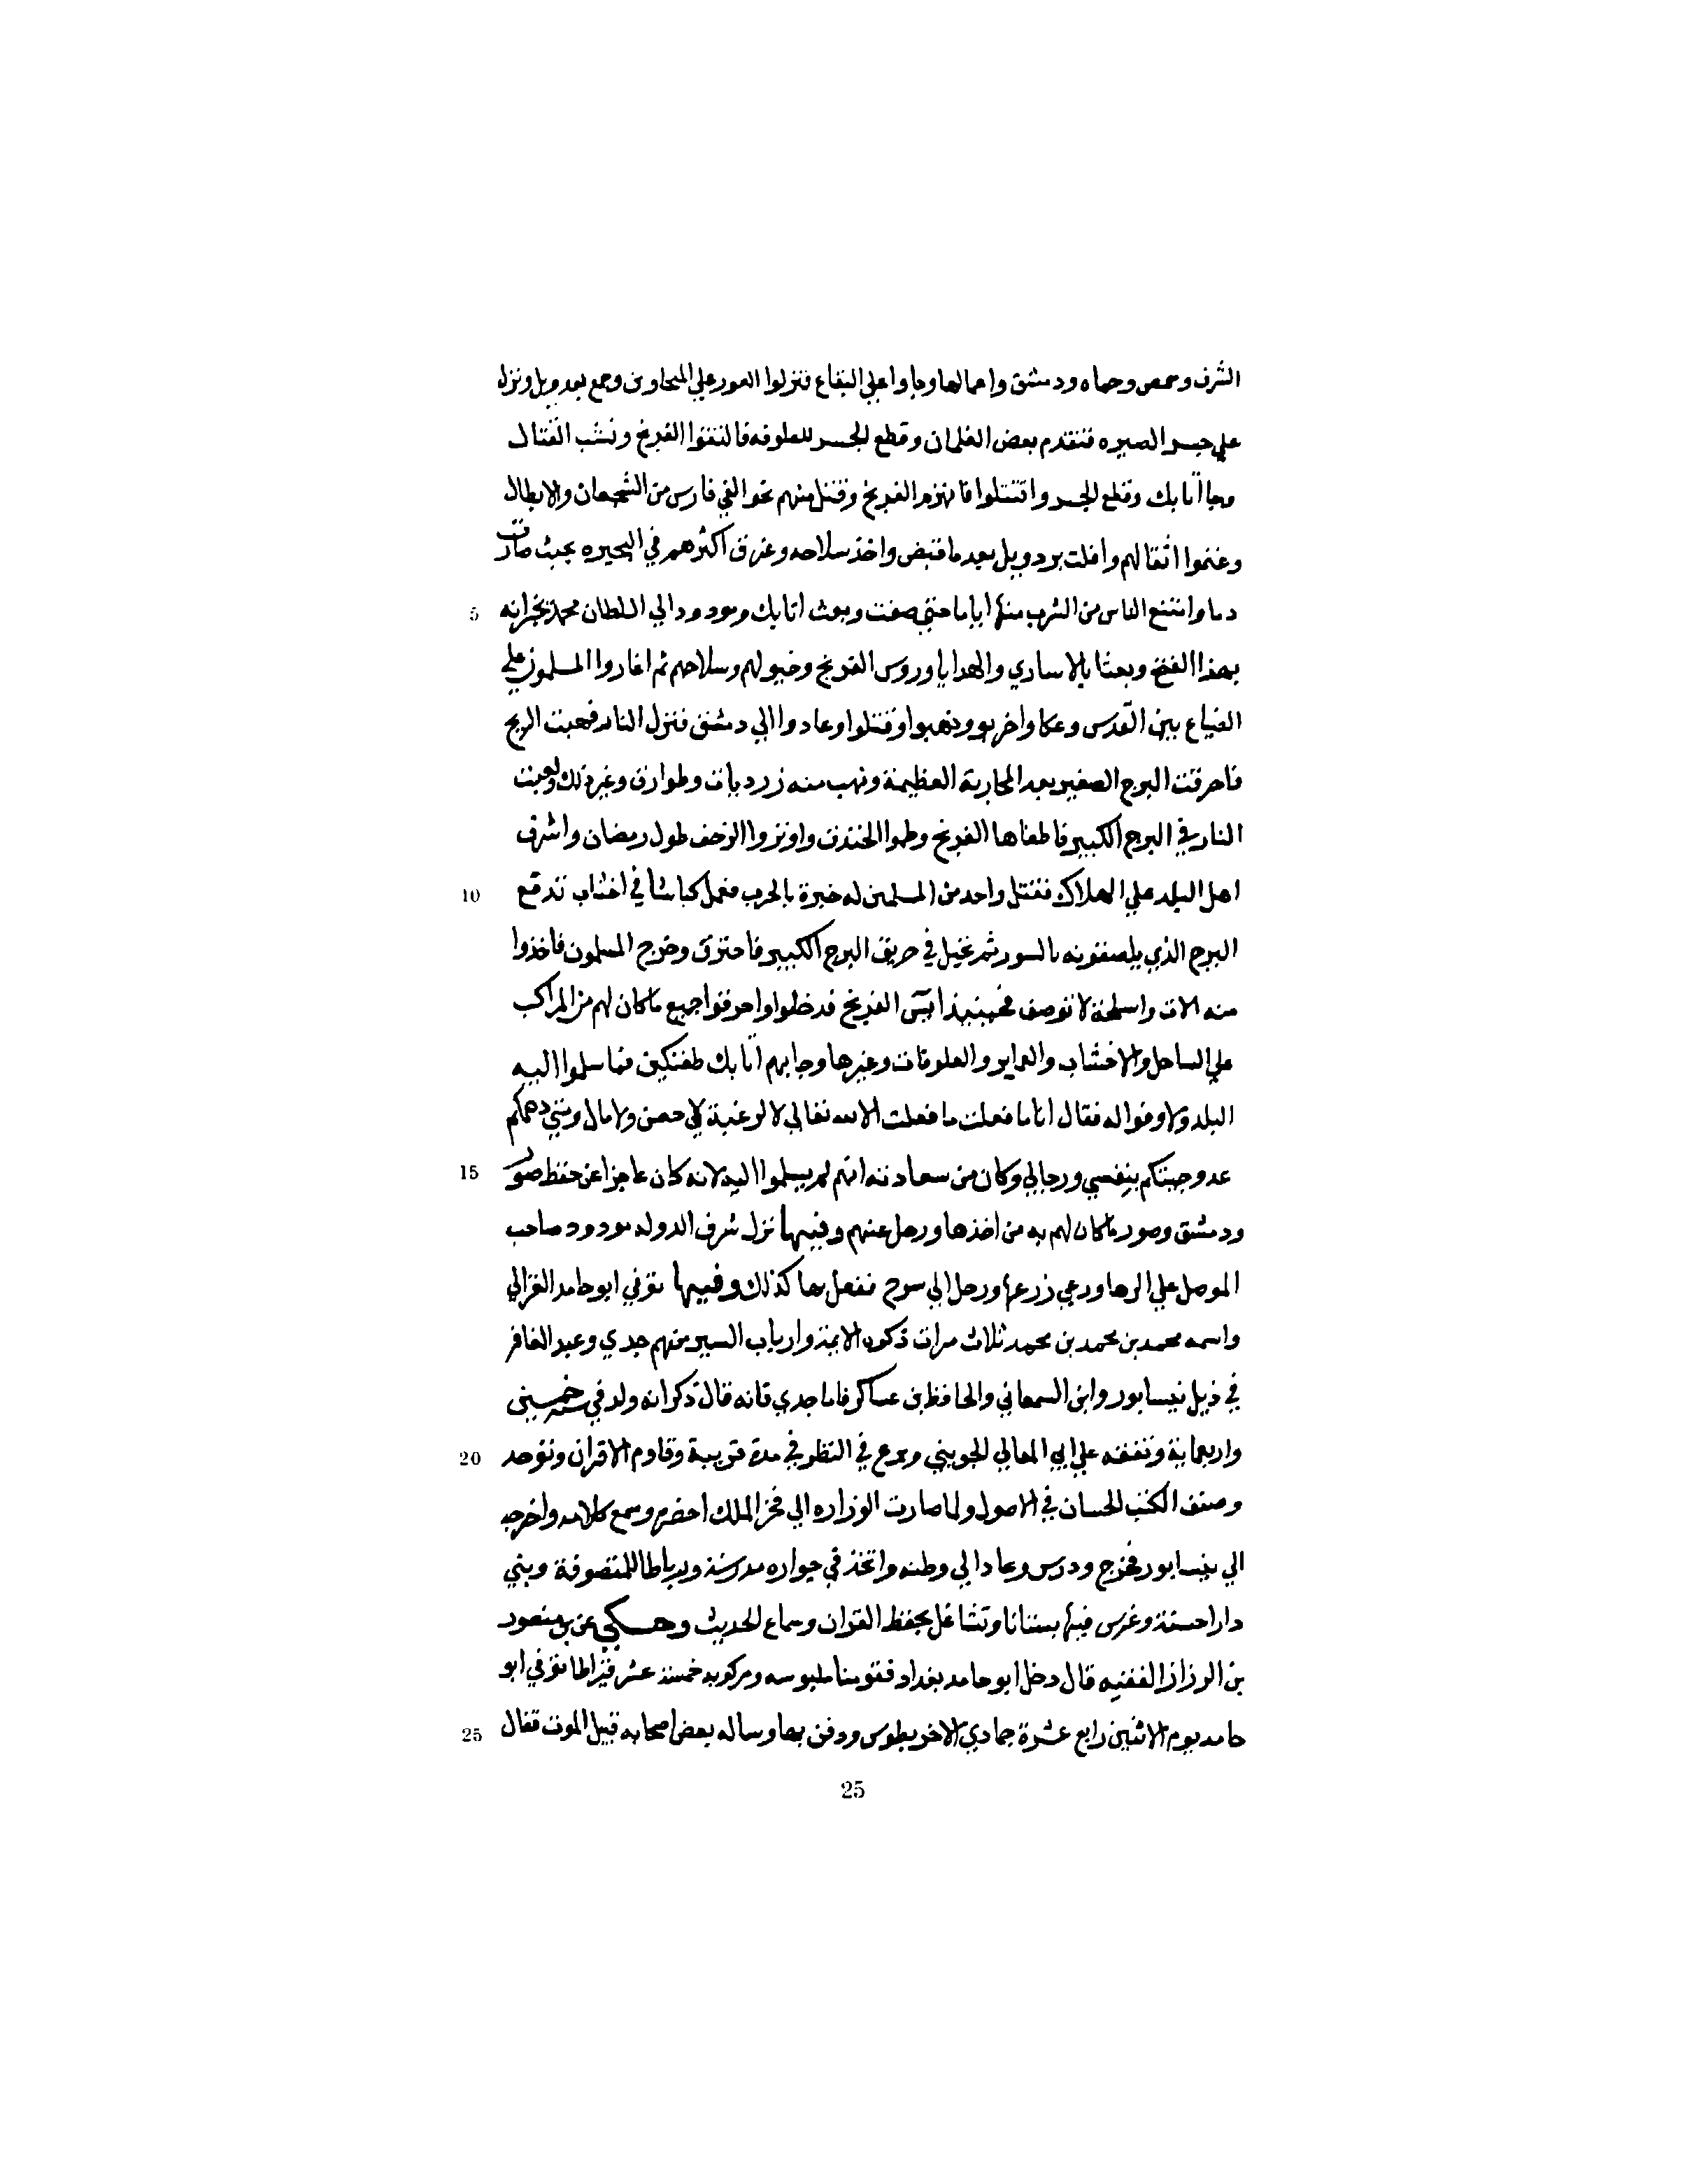 الشرف وحمص وحماه ودمشق واعمالها وجاوا علي البقاع فنزلوا الغور علي وجمع بعدويل ونزل
علي جسر الصبره فتقدم بعض الغلمان وقطع الجسر للعلوفه فالتقوا الفرنج ونشب القتال
وجا اتابك وقطع الجسر واقتتلوا فانهزم الفرنج وقتل منهم نحو الفي فارس من الشجعان والابطال
وغنموا اثقالهم وافلت بردويل بعد ما قبض واخذ سلاحه وغرق اكثرهم في البحيره بحيث صارت
5 دما وامتنع الناس من الشرب منها اياما حتي صفت وبعث اتابك ومودود الي السلطان محمد يخبرانه
بهذا الفتح وبعثا بالاساري والهدايا وروس الفرنج وخيولهم وسلاحهم ثم اغاروا المسلمون علي
الضياع بين القدس وعكا واخربو ونهبوا وقتلوا وعادوا الي دمشق فنزل الناس فهبت الريح
فاحرقت البرج الصغير بعد المحاربة العظيمة ونهب منه زرديات وطوارق وغير ذلك ولعبت
النار في البرج الكبير فاطفاها الفرنج وطموا الخندق الزحف طول رمضان واشرف
10 اهل البلد علي الهلاك فقتل واحد من المسلمين له خبرة بالحرب فعمل كباشا في اخشاب تدفع
البرج الذي يلصقونه بالسور ثم تحيل في حريق البرج الكبير فاحترق وخرج المسلمون فاخذوا
منه الات واسلحة لا توصف فحينيذ ايس الفرنج فدخلوا واحرقوا جميع ما كان لهم من المراكب
علي الساحل والاخشاب والعماير والعلوفات وغيرها وجابهم اتابك طغتكين فما سلموا اليه
البلد ولا وفوا له فقال انا ما فعلت ما فعلت الا لله تعالي لا لرغبة في حصن ولا مال ومتي دهمكم
15 عدو جيتكم بنفسي ورجالي وكان من سعادته انهم لم يسلموا اليه لانه كان عاجزا عن حفظ صور
ودمشق وصور ما كان لهم به من اخذها ورحل عنهم وفيها نزل شرف الدوله مودود صاحب
الموصل علي الرها ورعي زرعها ورحل الي سروج ففعل بها كذلك وفيها توفي ابو حامد الغزالي
واسمه محمد بن محمد بن محمد ثلاث مرات ذكره الايمة وارباب السير منهم جدي وعبد الغافر
في ذيل نيسابور وابن السمعاني والحافظ بن عساكر فاما جدي فانه قال ذكر انه ولد في سنه خمسين
20 واربعماية وتفقه علي ابي المعالي الجويني وبرع في النظر في مدة قريبة وقاوم الاقران وتوحد
وصنف الكتب الحسان في الاصول ولما صارت الوزاره الي فخر الملك احضره وسمع كلامه واخرجه
الي نيسابور فخرج ودرس وعاد الي وطنه واتخذ في جواره مدرسة ورباطا للمتصوفة وبني
دارا حسنة وغرس فيها بستانا وتشاغل بحفظ القران وسماع الحديث وحكي عن بن منصور
بن الرزاز الفقيه قال دخل ابو حامد بغداد فقومنا ملبوسه ومركوبه خمسة عشر قيراطا توفي ابو
25 حامد يوم الاثنين رابع عشرة جمادي الاخر بطوس ودفن بها وساله بعض اصحابه قبيل الموت فقال
25